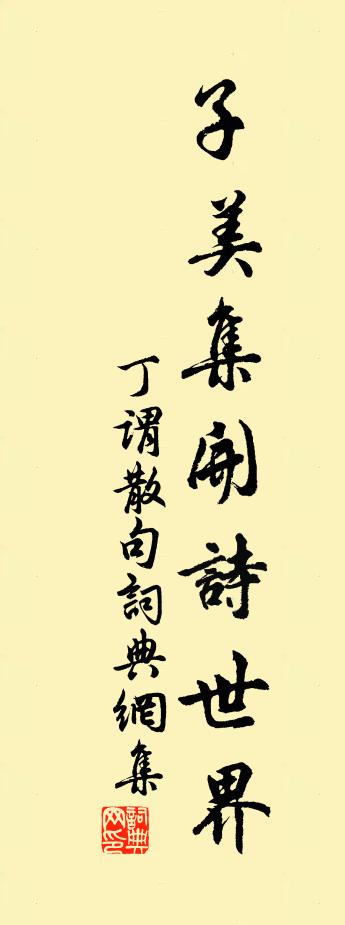 子美集開詩世界
丁謂散句詞典網集
詞典网印